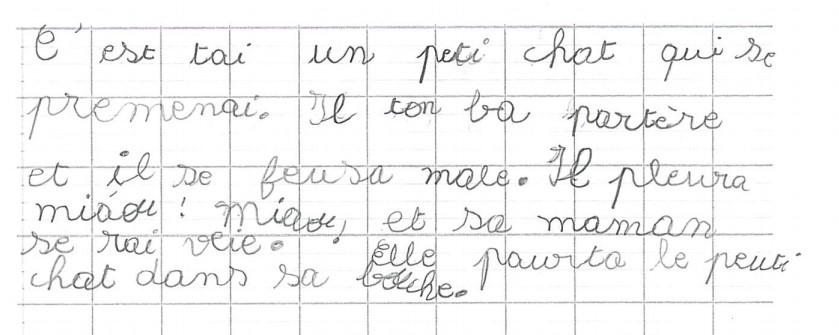 C'est tai un peti chat qui se
premenai. Il ton ba partère
et il se feusa male. Il pleura
miaou! miaou! et sa maman
se rai veie. Elle paurta le peuti
chat dans sa bouche.